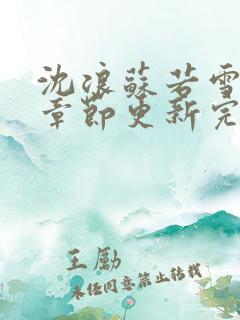 沈浪蘇若雪
章節更新完
王勵
未經同意禁止轉載